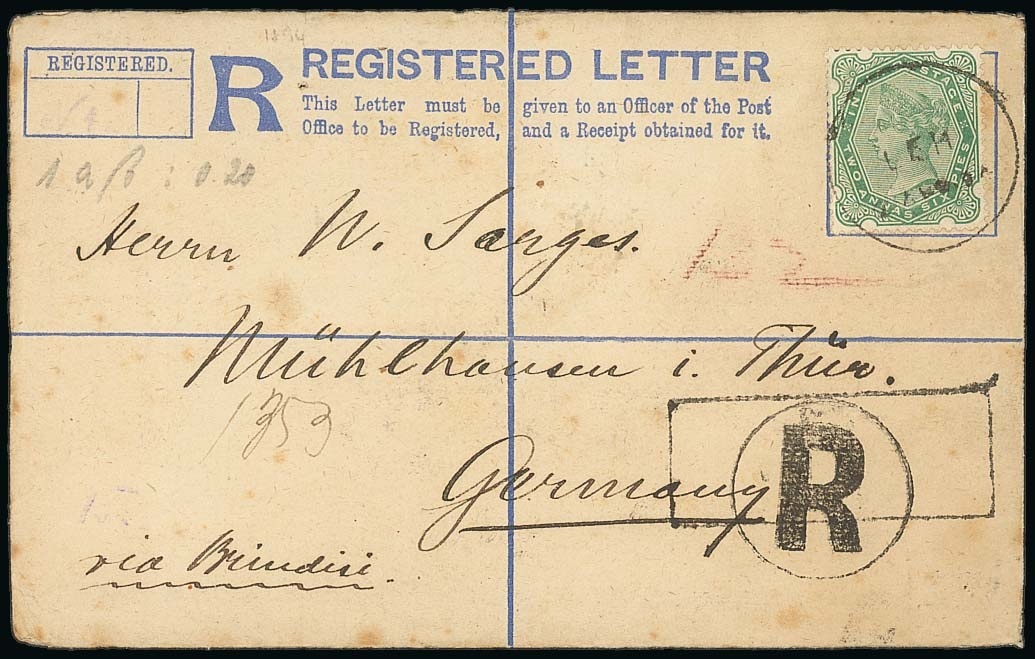 REGISTERED.
R
REGISTERED LETTER
This Letter must be given to an Officer of the Post
Office to be Registered, and a Receipt obtained for it.
INDIA POSTAGE
TWO ANNAS SIX PIES
LEH
Herrn W. Sarges.
Mühlhausen i. Thür.
1353
Germany
R
via Brindisi.